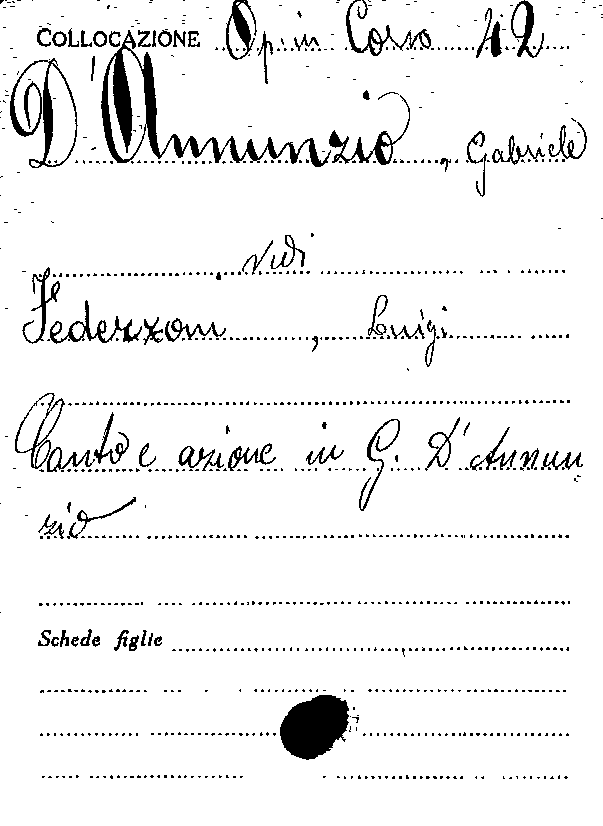 COLLOCAZIONE Op. in Corso 42
D'Annunzio, Gabriele
Vedi
Federzoni, Luigi
Canto e azione in G. D'Annun
zio
Schede figlie